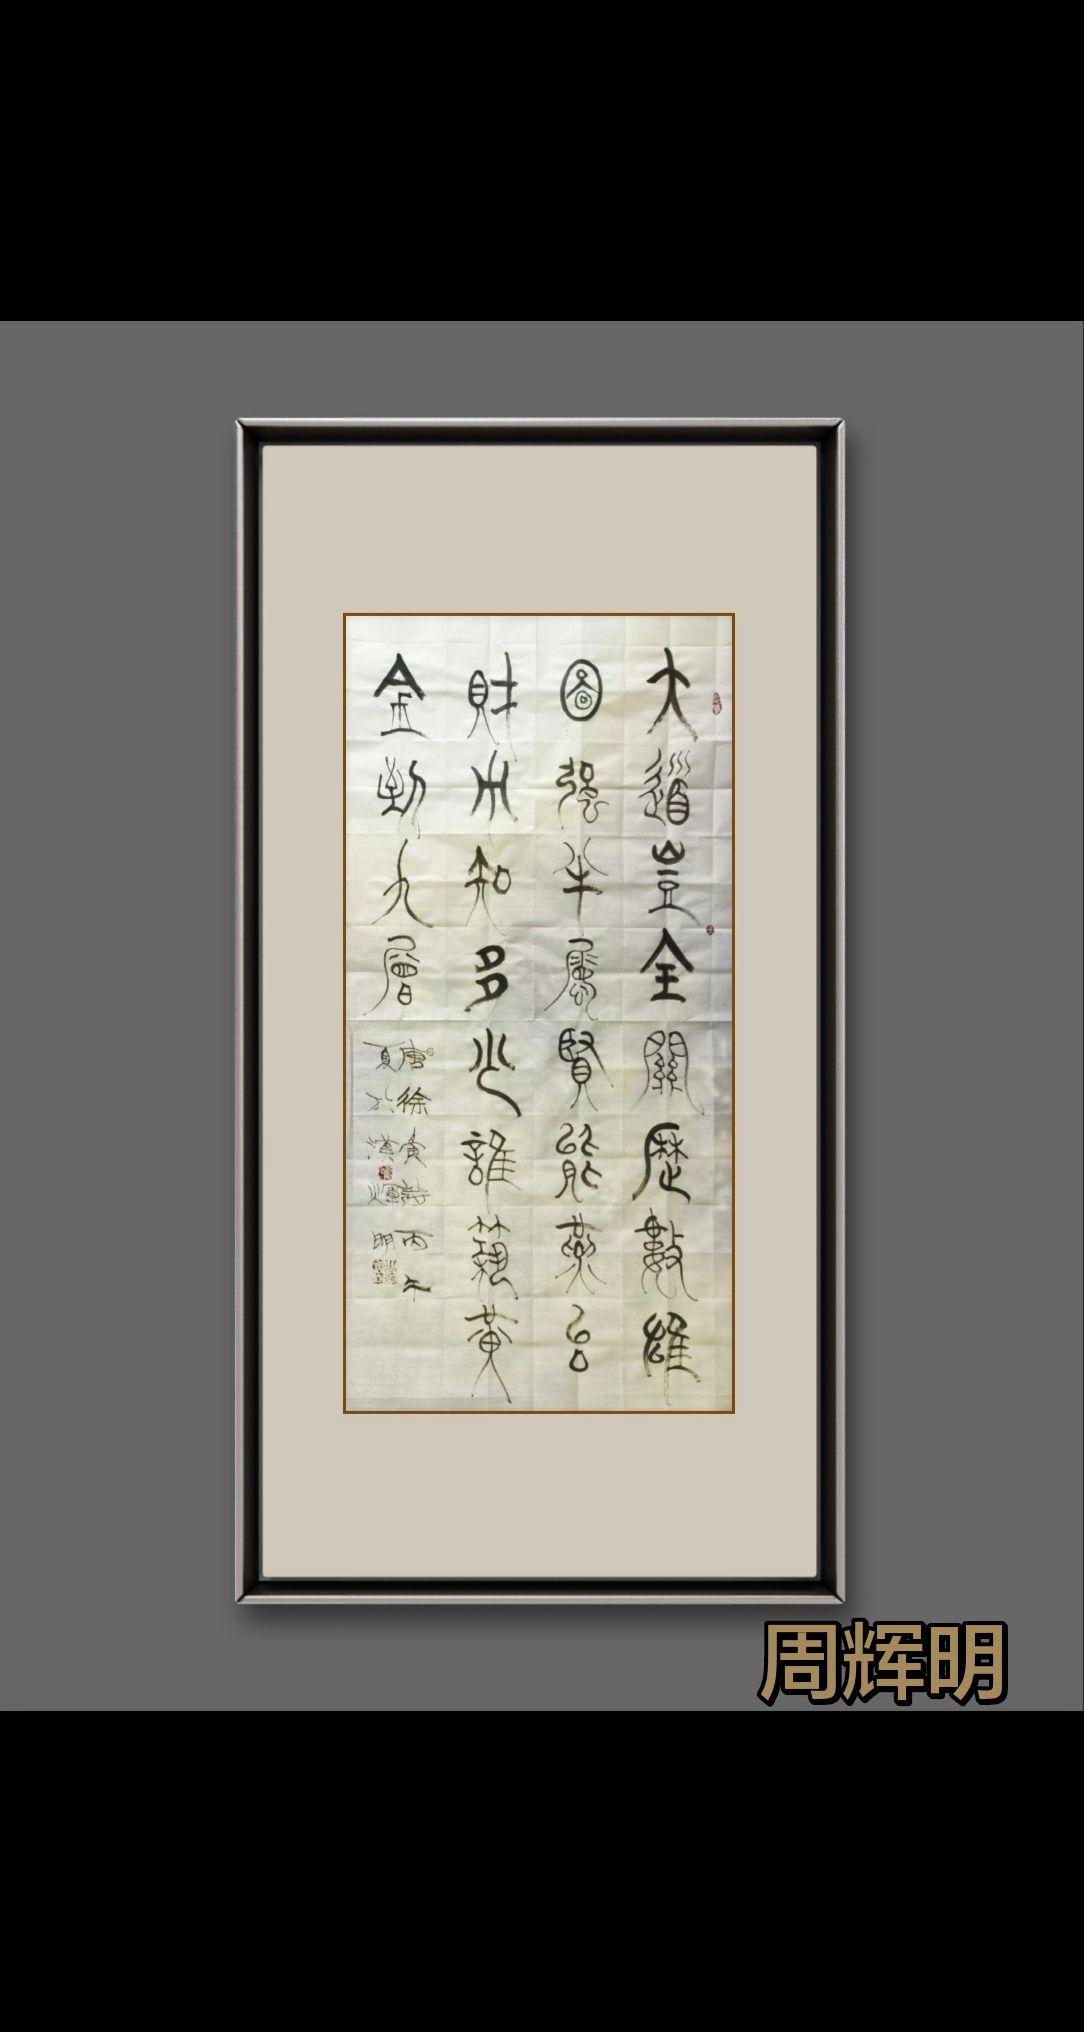 大道豈全關歷數雄
圖強半屬賢能燕台
財力知多少誰築黃
金到九層
唐徐夤詩丙午
夏於漢輝明
周辉明